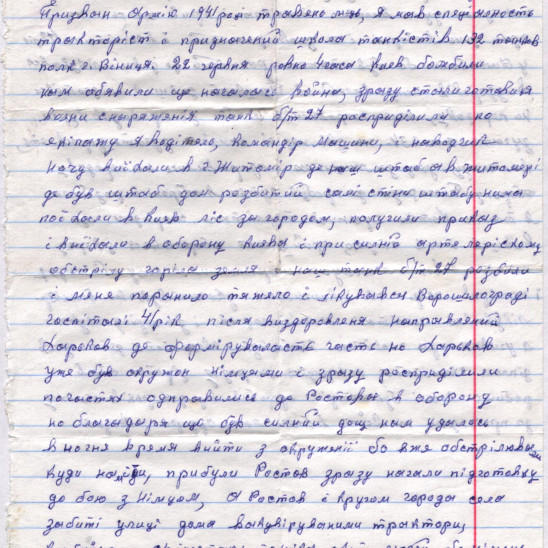 Призван Армію 1941 роді травень м-ць, я мав спеціальность
тракторіст і призначений школа танкістів 132 танков
полк г. Вініця. 22 червня ровно 4 часа киев бомбили
нам обявили що началась война, зразу стали готовится
возни снаряженія танк б/т 27 расприділили по
екіпажу я водітель, командір машини, і наводчик
ночу виїхали в г. Житомір де наш штаб а в житомері
де був штаб дом розбитий самі стіни штабу нима
поїхали в киев ліс за городом, получили приказ
і виїхали в оборону киева і при силній артелеріскому
обстрілу горіла земля і наш танк б/т 27 розбили
і меня поранило тяжело і лікувався Ворошилограді
госпіталі 4/рік після виздоровленя направлений
Харьков де формірувалась часть но Харьков
уже був окружон німцами і зразу расприділили
по частях одправились до Ростова в оборону
но благодаря що був силний дощ нам удалось
в ночня время вийти з окруженії бо вже обстрілювали
куди нам іти, прибули Ростов зразу начали підготовку
до бою з Німцом, а Ростов і кругом города села
забиті улиці дома евакуіруваними трактори,